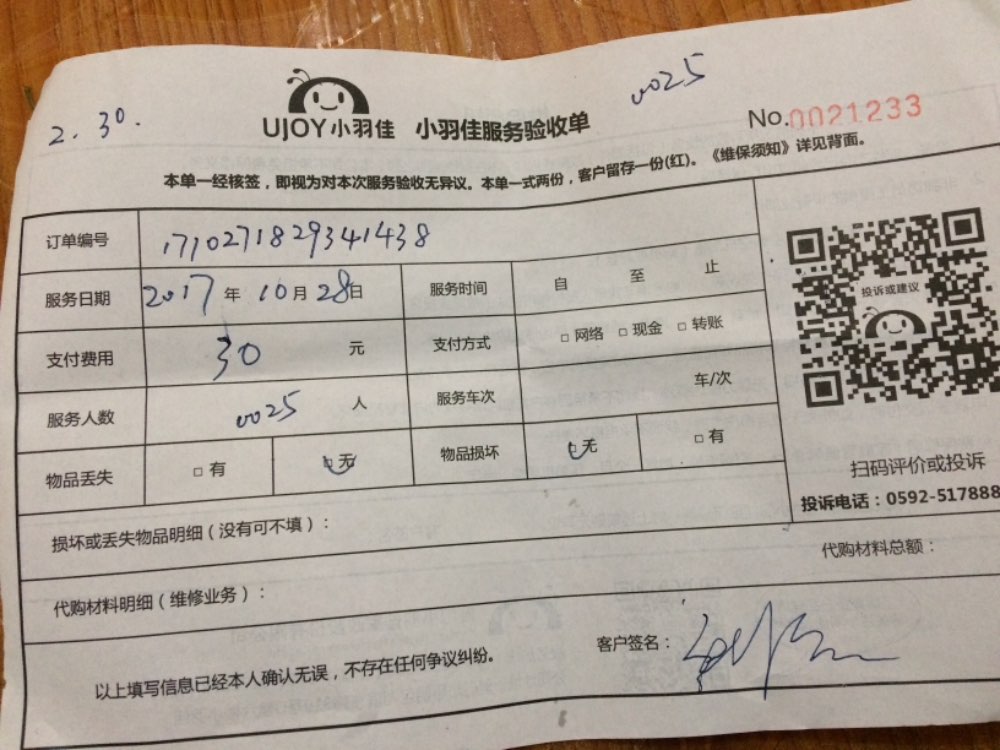 2.30.
0025
UJOY小羽佳 小羽佳服务验收单
No.0021233
本单一经核签，即视为对本次服务验收无异议。本单一式两份，客户留存一份(红)。《维保须知》详见背面。
订单编号 1710271829341438
服务日期 2017年10月28日 服务时间 自 至 止
支付费用 30 元 支付方式 □网络 □现金 □转账
服务人数 0025 人 服务车次 车/次
物品丢失 □有 □无 物品损坏 □无 □有
投诉或建议
扫码评价或投诉
投诉电话：0592-517888
损坏或丢失物品明细（没有可不填）：
代购材料明细（维修业务）： 代购材料总额：
以上填写信息已经本人确认无误，不存在任何争议纠纷。 客户签名：